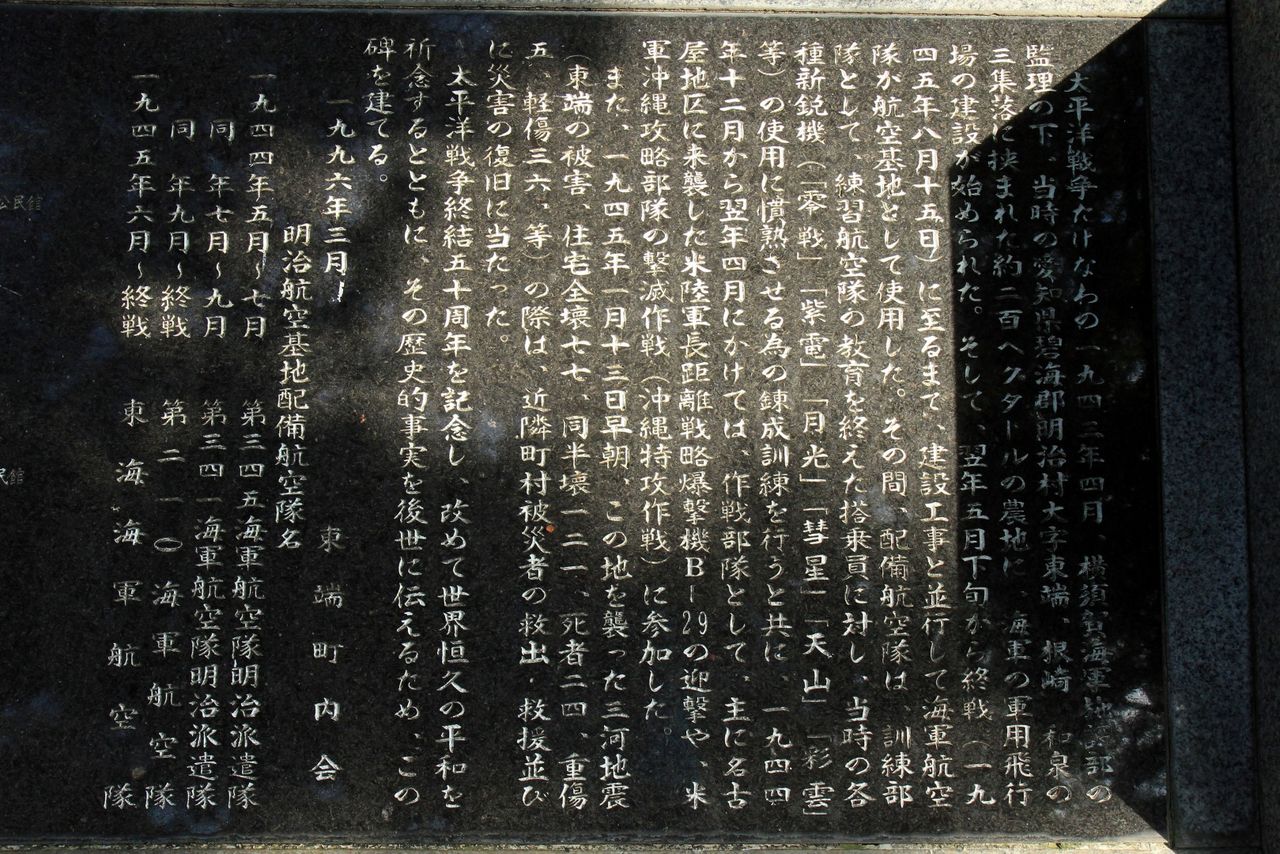 太平洋戦争たけなわの一九四三年四月、横須賀海軍施設部の
監理の下、当時の愛知県碧海郡明治村大字東端、根崎、和泉の
三集落に挟まれた約二百ヘクタールの農地に、海軍の軍用飛行
場の建設が始められた。そして、翌年五月下旬から終戦(一九
四五年八月十五日)に至るまで、建設工事と並行して海軍航空
隊が航空基地として使用した。その間、配備航空隊は、訓練部
隊として、練習航空隊の教育を終えた搭乗員に対し、当時の各
種新鋭機(「零戦」「紫電」「月光」「彗星」「天山」「彩雲」
等)の使用に慣熟させる為の錬成訓練を行うと共に、一九四四
年十二月から翌年四月にかけては、作戦部隊として、主に名古
屋地区に来襲した米陸軍長距離戦略爆撃機B-29の迎撃や、米
軍沖縄攻略部隊の撃滅作戦(沖縄特攻作戦)に参加した。
また、一九四五年一月十三日早朝、この地を襲った三河地震
(東端の被害、住宅全壊七七、同半壊一二一、死者二四、重傷
五、軽傷三六、等)の際は、近隣町村被災者の救出・救援並び
に災害の復旧に当たった。
太平洋戦争終結五十周年を記念し、改めて世界恒久の平和を
祈念するとともに、その歴史的事実を後世に伝えるため、この
碑を建てる。
一九九六年三月 東端町内会
明治航空基地配備航空隊名
一九四四年五月~七月 第三四五海軍航空隊明治派遣隊
同 年七月~九月 第三四一海軍航空隊明治派遣隊
同 年九月~終戦 第二一〇海軍航空隊
一九四五年六月~終戦 東海海軍航空隊
公民館
民館